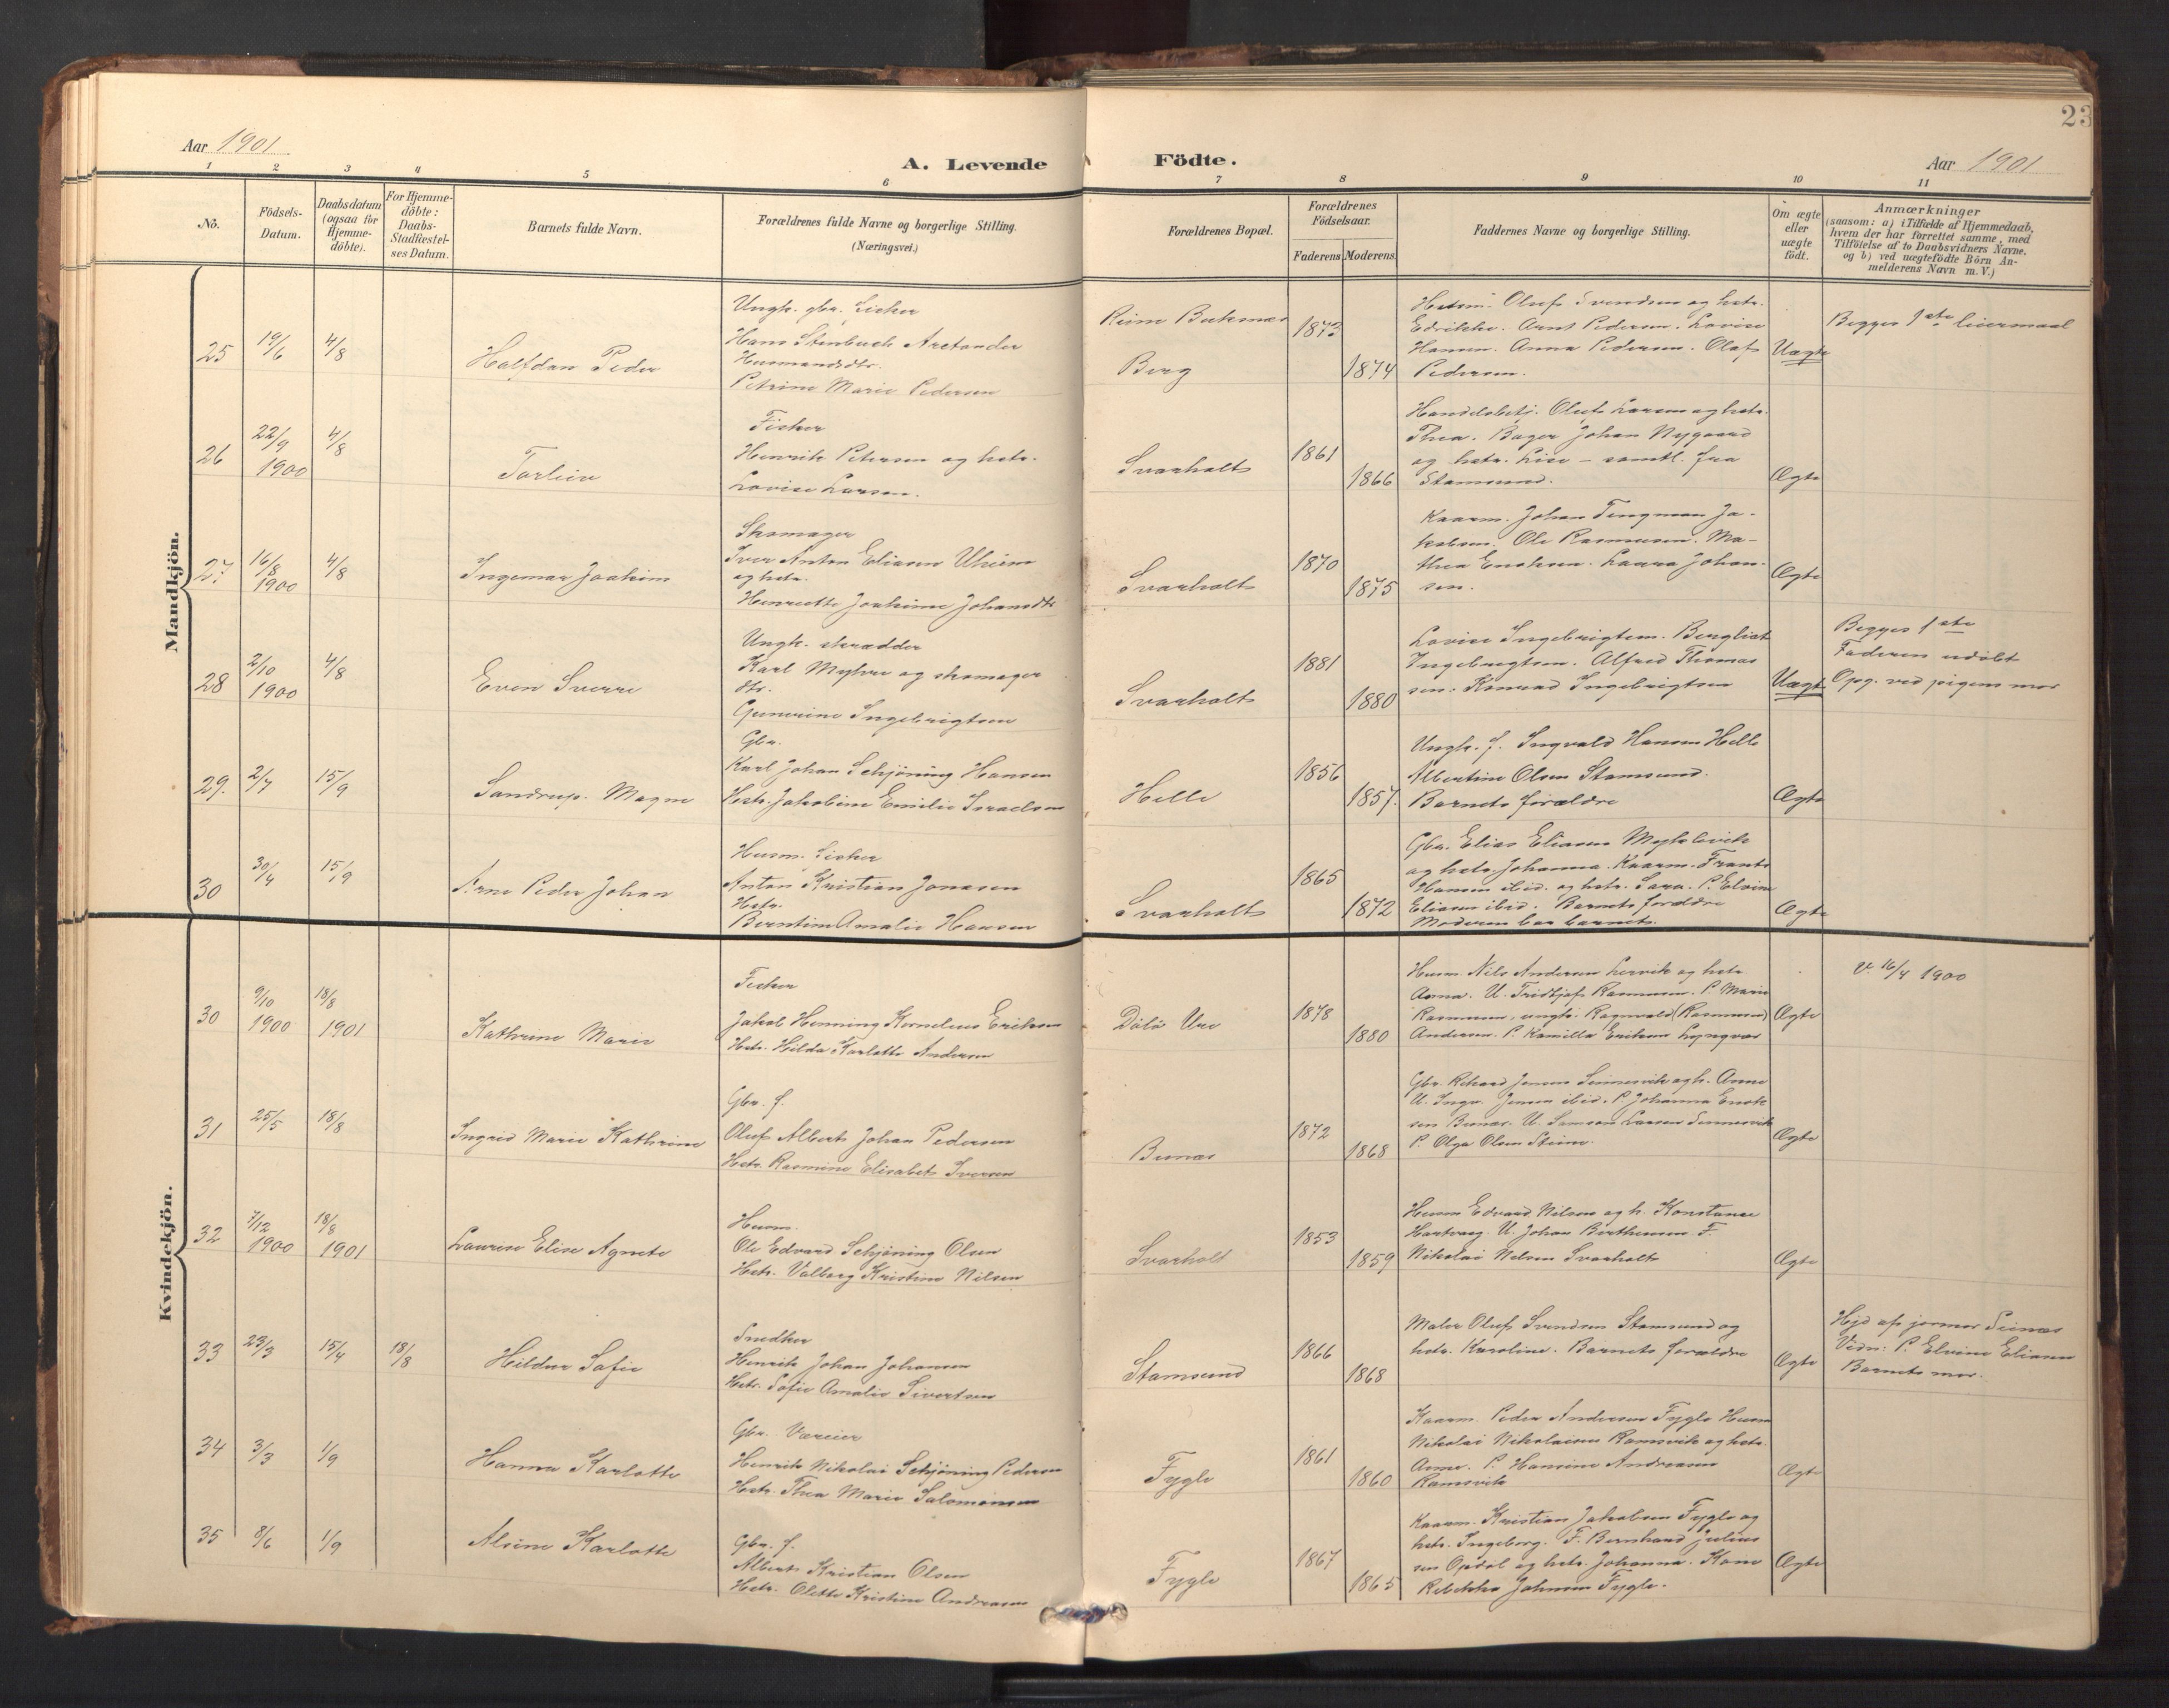 23
Aar 1901
A. Levende Födte.
Aar 1901
1 2 3 4 5 6 7 8 9 10 11
No.
Födsels-
Datum.
Daabsdatum
(ogsaa for
Hjemme-
döbte).
For Hjemme-
döbte:
Daabs-
Stadfæstel-
ses Datum.
Barnets fulde Navn.
Forældrenes fulde Navne og borgerlige Stilling.
(Næringsvei.)
Forældrenes Bopæl.
Forældrenes
Födselsaar.
Faderens Moderens
Faddernes Navne og borgerlige Stilling.
Om ægte
eller
uægte
födt.
Anmærkninger
(saasom: a) i Tilfælde af Hjemmedaab,
hvem der har forrettet samme, med
Tilföielse af to Daabsvidners Navne.
og b) ved uægtefödte Börn An-
melderens Navn m. V.)
Mandkjön.
25
19/6
4/8
Halfdan Peder
Ungk. gbr. Fisker
Hans Steinbuch Arctander
Husmandsdtr.
Petrine Marie Pedersen
Buksnæs
Berg
1873
1874
Oluf Svendsen og hstr.
Arnt Pedersen. Lovise
Hansen. Anna Pedersen. Olaf
Pedersen.
Uægte
Begges 1ste leiermaal
26
22/9
1900
4/8
Torleiv
Fisker
Henrik Petersen og hstr.
Lovise Larsen.
Svarholt
1861
1866
Handelsbetj. Oluf Larsen og hstr.
Thea. Bager Johan Nygaard
og hstr. Lise – samtl. fra
Stamsund.
Ægte
27
16/8
1900
4/8
Ingemar Joakim
Skomager
Iver Anton Eliasen
og hstr.
Henriette Joakime Johansdtr
Svarholt
1870
1875
Kaarm. Johan Tengman Ja-
kobsen. Ole Rasmussen. Ma-
thea Enoksen. Laura Johan-
sen.
Ægte
28
2/10
1900
4/8
Even Sverre
Ungk. skrædder
Karl Myhre og skomager
dtr.
Gunerine Ingebrigtsen
Svarholt
1881
1880
Lovise Ingebrigtsen. Bergliot
Ingebrigtsen. Alfred Thomas
sen. Konrad Ingebrigtsen
Uægte
Begges 1ste
Faderen udöbt
Opg. ved pigens mor
29.
2/7
15/9
Sandrup. Magne
Gbr.
Karl Johan Schjöning Hansen
Hstr. Jakobine Emilie Israelsen
Helle
1856
1857.
Ungk. f. Ingvald Hansen Helle
Albertine Olsen Stamsund.
Barnets forældre
Ægte
30
30/4
15/9
Arne Peder Johan
Husm. Fisker
Anton Kristian Jonasen
Hstr.
Berntine Amalie Hansen
Svarholt
1865
1872
Gbr. Elias Eliasen
og hstr. Johanna. Kaarm. Frants
Hansen ibid. og hstr. Sara. P. Elvine
Eliasen ibid. Barnets forældre
Moderen bar barnet.
Ægte
Kvindekjön.
30
9/10
1900
18/8
1901
Kathrine Marie
Fisker
Jakob Henning Kornelius Eriksen
Hstr. Hilda Karlotte Andersen
Ure
1878
1880
Husm. Nils Andersen Lervik og hstr
Anna. U. Fridtjof Rasmussen. P. Marie
Rasmussen, ungk. Ragnvald (Rasmussen)
Andersen. P. Kamilla Eriksen
Ægte
v. 16/4 1900
31
25/5
18/8
Ingrid Marie Kathrine
Gbr. f.
Oluf Albert Johan Pedersen
Hstr. Rasmine Elisabet Iversen
1872
1868
Gbr. Rikard Jensen Sennesvik og h. Anne
U. Ingv. Jensen ibid. P. Johanna Enok
sen U. Samson Larsen Sennesvik
P. Olga Olsen Steine.
Ægte
32
7/12
1900
18/8
1901
Laurise Elise Agnete
Husm.
Ole Edvard Schjöning Olsen
Hstr. Valborg Kristine Nilsen
Svarholt
1853
1859
Husm Edvard Nilsen og h. Konstanse
U. Johan F.
Nikolai Nilsen Svarholt
Ægte
33
23/3
15/4
18/8
Hildur Sofie
Snedker
Henrik Johan Johansen
Hstr. Sofie Amalie Sivertsen
Stamsund
1866
1868
Maler Oluf Svendsen Stamsund og
hstr. Karoline. Barnets forældre
Ægte
Hjd af jormor
Vidn: P. Elvine Eliasen
Barnets mor.
34
3/3
1/9
Hanna Karlotte
Gbr. Væreier
Henrik Nikolai Schjöning Pedersen
Hstr. Thea Marie Salomonsen
Fygle
1861
1860
Kaarm. Peder Andersen Fygle Husm
Nikolai Nikolaisen Ramsvik og hstr.
Anne. P. Hansine Andreasen
Ramsvik
Ægte
35
8/6
1/9
Alsine Karlotte
Gbr. f.
Albert Kristian Olsen
Hstr. Olette Kristine Andreasen
Fygle
1867
1865
Kaarm. Kristian Jakobsen Fygle og
hstr. Ingeborg. F. Bernhard Julius
sen Opdöl og hstr. Johanna. Kone
Rebekka Johnsen Fygle.
Ægte